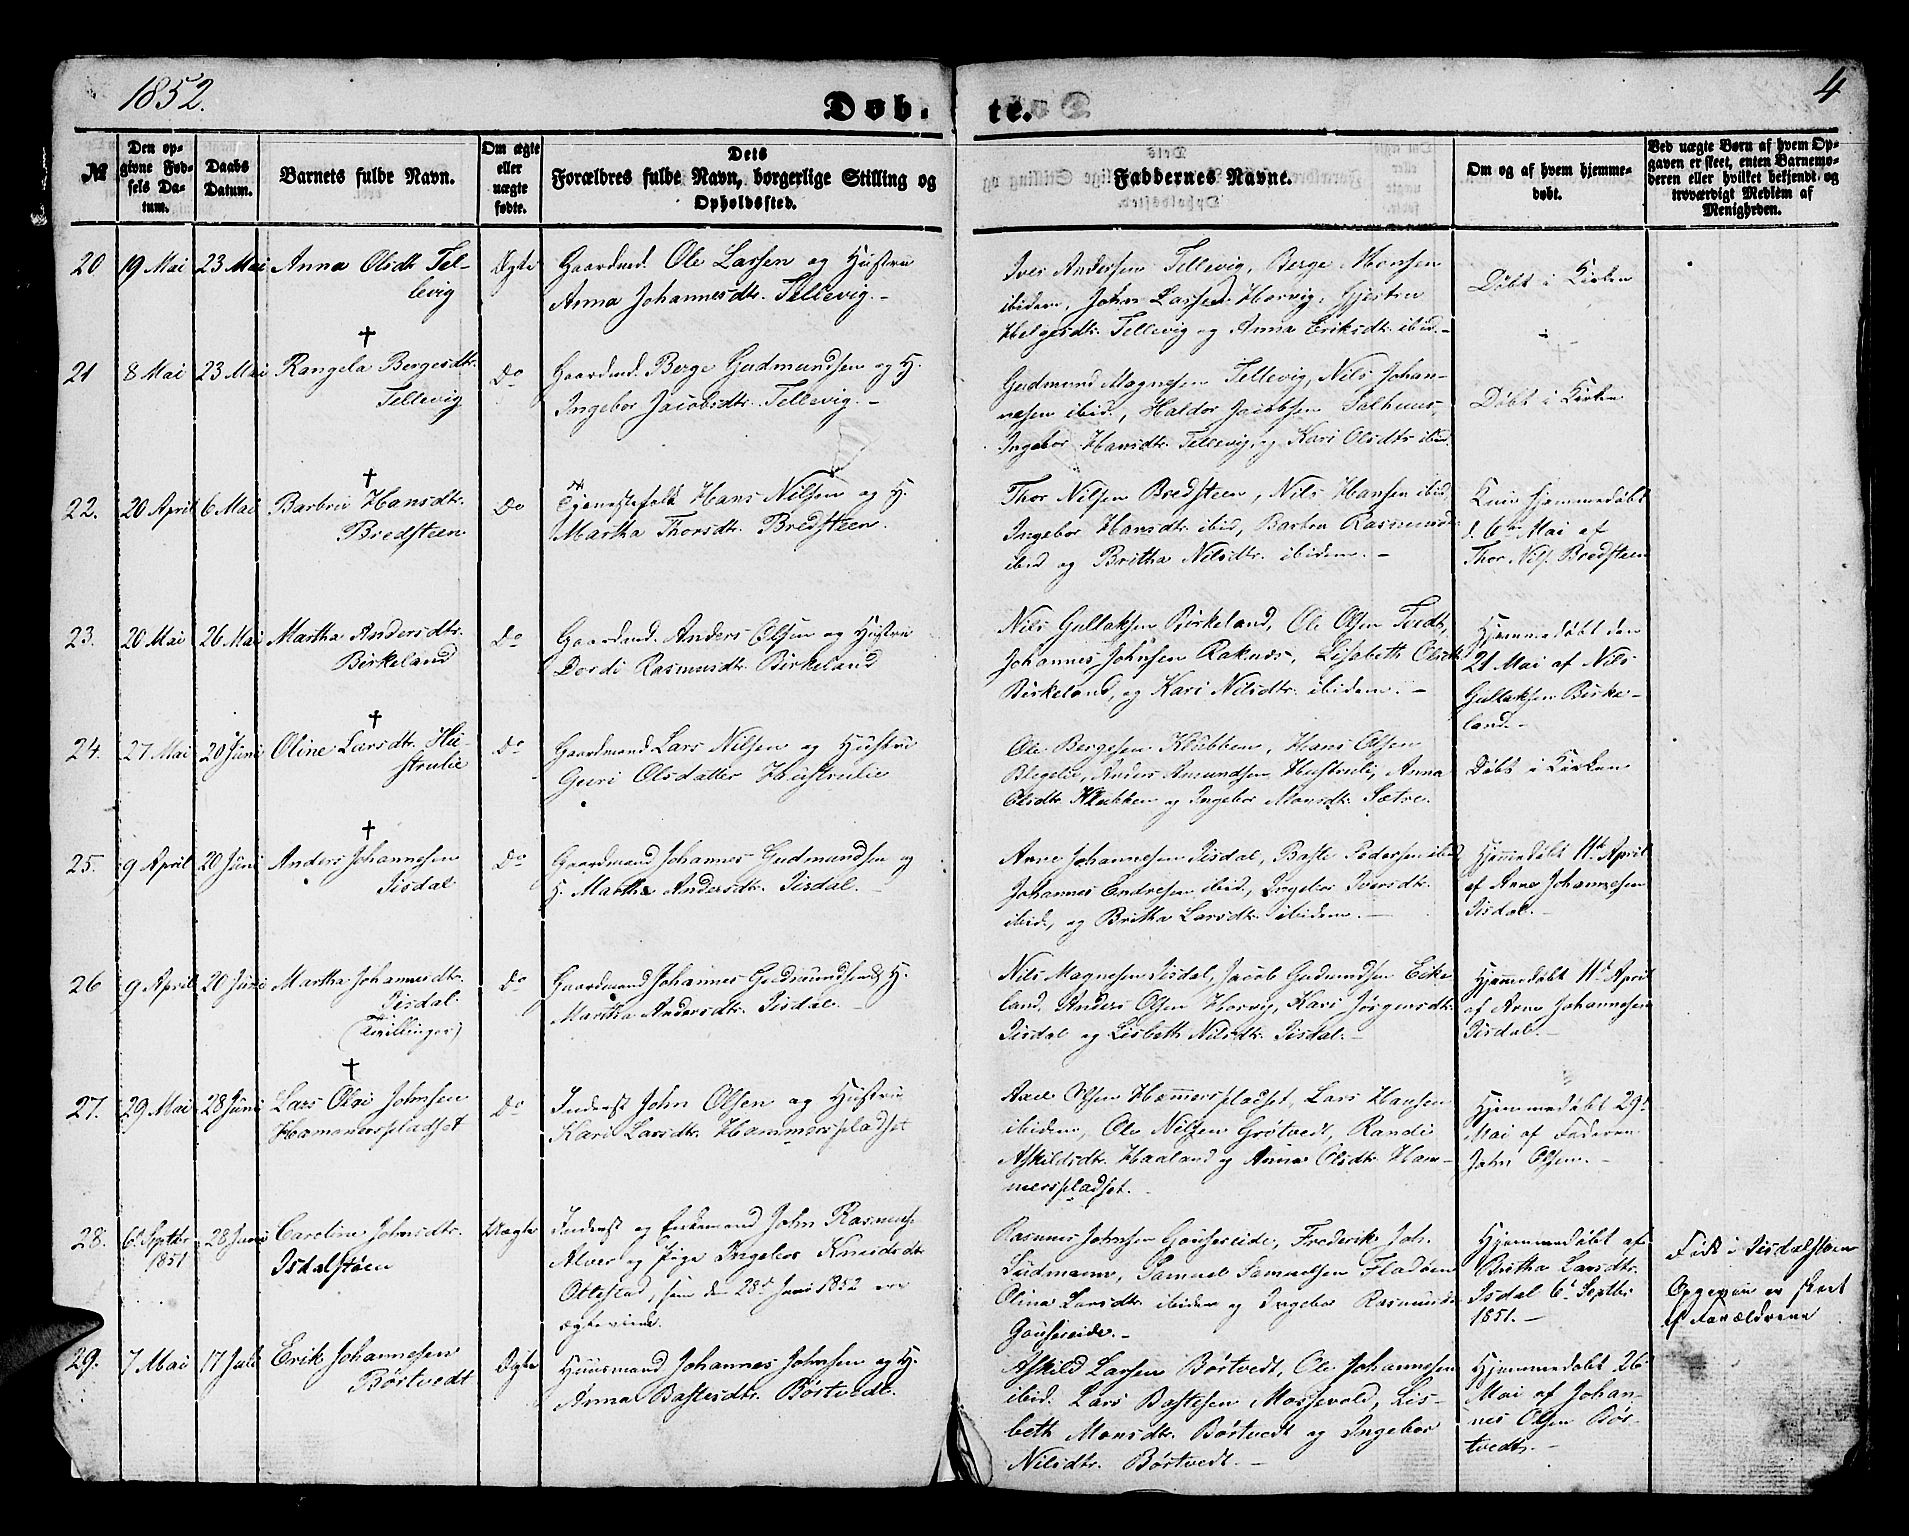 1852.
Døb-
te.
4
№
Den op-
givne Fød-
sels Da-
tum.
Daabs
Datum.
Barnets fulde Navn.
Om ægte
eller
uægte
fødte.
Dets
Forældres fulde Navn, borgerlige Stilling og
Opholdssted.
Faddernes Navne.
Om og af hvem hjemme-
døbt.
Ved uægte Børn af hvem Op-
gaven er skeet, enten Barnemo-
deren eller hvilket bekjendt og
troværdigt Medlem af
Menigheden.
20
19 Mai
23 Mai
Anna Olsdtr Tel-
levig
Ægte
Gaardmd. Ole Larsen og Hustru
Anna Johannesdtr. Tellevig.-
Iver Andersen Tellevig, Berge Monsen
ibidem, John Larsen Horvig, Gjertru
Helgesdtr. Tellevig og Anna Eriksdtr. ibid.-
Døbt i Kirken
21
8 Mai
23 Mai
†
Rangela Bergesdtr.
Tellevig
Do
Gaardmd. Berge Gudmundsen og H.
Ingebor Jacobsdtr. Tellevig.-
Gudmund Magnesen Tellevig, Nils Johan-
nesen ibid., Haldor Jacobsen Salhuus,
Ingebor Hansdtr. Tellevig, og Kari Olsdtr ibid.
Døbt i Kirken
22.
20 April
6 Mai
†
Barbru Hansdtr.
Bredsteen
Do
Tjenestefolk Hans Nilsen og H.
Martha Thorsdtr. Bredsteen.
Thor Nilsen Bredsteen, Nils Hansen ibid,
Ingebor Hansdtr. ibid, Barbra Rasmusd
ibid og Britha Nilsdtr. ibidem.-
Kun hjemmedøbt
d. 6te Mai af
Thor Nils. Bredsteen
23.
20 Mai
26 Mai
Martha Andersdtr.
Birkeland
Do
Gaardmd. Anders Olsen og Hustru
Dordi Rasmusdtr. Birkeland
Nils Gullaksen Birkeland, Ole Olsen Tvedt,
Johannes Johnsen Raknæs, Lisabeth Olsdtr
Birkeland, og Kari Nilsdtr. ibidem.-
Hjemmedøbt den
21 Mai af Nils
Gullaksen Birke-
land.-
24.
27 Mai
20 Juni
†
Oline Larsdtr. Hu-
strulie
Do
Gaardmand Lars Nilsen og Hustru
Guri Olsdatter Hustrulie
Ole Bergesen Klubben, Hans Olsen
Blegelie, Anders Amundsen Hustruli, Anna
Olsdtr. Klubben og Ingebor Monsdtr. Sætre.
Døbt i Kirken
25.
9 April
20 Juni
†
Anders Johannesen
Iisdal
Do
Gaardmand Johannes Gudmundsen og
H. Martha Andersdtr. Iisdal.-
Arne Johannesen Iisdal, Baste Pedersen ibid
Johannes Endresen ibid., Ingebor Iversdtr.
ibid, og Britha Larsdtr. ibidem.-
Hjemmedøbt 11te April
af Arne Johannesen
Iisdal.-
26
9 April
20 Juni
Martha Johannesdtr.
Iisdal.
(Tvillinger)
Do
Gaardmand Johannes Gudmundsen & H.
Martha Andersdtr. Iisdal.-
Nils Magnesen Iisdal, Jacob Gudmundsen Eike
land, Anders Olsen Horvig, Kari Jørgensdtr.
Iisdal og Lisbeth Nilsdtr. Iisdal.-
Hjemmedøbt 11te April
af Arne Johannesen
Iisdal.-
27.
29 Mai
28 Juni
†
Lars Olai Johnsen
Hammerspladset
Do
Inderst John Olsen og Hustru
Kari Larsdtr. Hammerspladset
Olsen Hammerspladset, Lars Hansen
ibidem, Ole Nilsen Grøtvedt, Randi
Askildsdtr. Haaland og Anna Olsdtr. Ham-
merspladset.
Hjemmedøbt 29de
Mai af Faderen
John Olsen.-
28.
6te Septbr
1851
28 Juni
Caroline Johnsdtr.
Isdalstøen
Uægte
Inderst og Enkemand John Rasmus.
Alver og Pige Ingebor Knudsdtr
Ottestad, som den 28de Juni 1852 ere
ægteviede.
Rasmus Johnsen Gausereide, Frederik Joh.
Ludmann, Samuel Samuelsen Fladøen
Olina Larsdtr. ibidem og Ingebor Rasmusd
Gausereide.-
Hjemmedøbt af
Britha Larsdtr.
Isdal 6te Septbr
1851.-
Født i Iisdalstøen
Opgaven er skeet
af Forældrene
29.
7 Mai
17 Juli
Erik Johannesen
Børtvedt
Ægte
Huusmand Johannes Johnsen og H.
Anna Bastesdtr. Børtvedt.
Askild Larsen Børtvedt, Ole Johannesen
ibid. Lars Bastesen Mossevold, Lis-
beth Monsdtr. Børtvedt og Ingebor
Nilsdtr. Børtvedt.-
Hjemmedøbt 26
Mai af Johan-
nes Olsen Bør-
tvedt.-